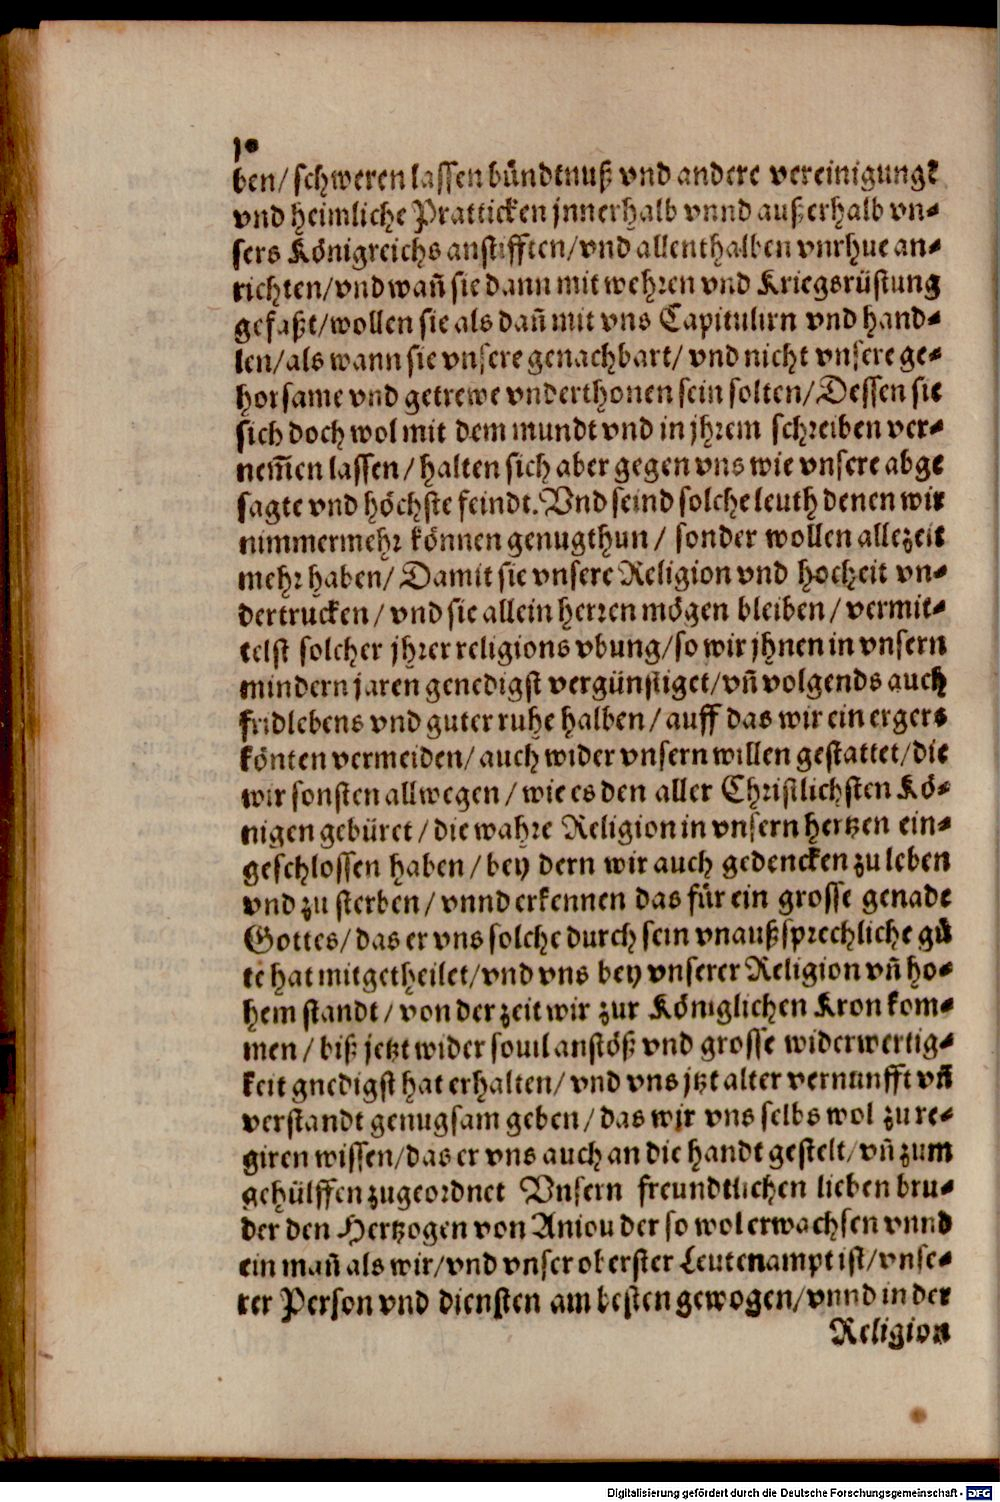 10
ben/ schweren lassen bündtnuß vnd andere vereinigungē
vnd heimliche Pratticken jnnerhalb vnnd außerhalb vn-
sers Königreichs anstifften/vnd allenthalben vnrhue an-
richten/vnd wañ sie dann mit wehren vnd Kriegsrüstung
gefaßt/wollen sie als dañ mit vns Capitulirn vnd hand-
len/als wann sie vnsere genachbart/ vnd nicht vnsere ge-
horsame vnd getrewe vnderthonen sein solten/Dessen sie
sich doch wol mit dem mundt vnd in jhrem schreiben ver-
nem̃en lassen/ halten sich aber gegen vns wie vnsere abge
sagte vnd höchste feindt. Vnd seind solche leuth denen wir
nimmermehr können genugthun/ sonder wollen allezeit
mehr haben/ Damit sie vnsere Religion vnd hocheit vn-
dertrucken/ vnd sie allein herren mögen bleiben/ vermit-
telst solcher jhrer religions vbung/so wir jhnen in vnsern
mindern jaren genedigst vergünstiget/vñ volgends auch
fridlebens vnd guter ruhe halben/ auff das wir ein ergers
könten vermeiden/ auch wider vnsern willen gestattet/die
wir sonsten allwegen/ wie es den aller Christlichsten Kö-
nigen gebüret/ die wahre Religion in vnsern hertzen ein-
geschlossen haben/ bey dern wir auch gedencken zu leben
vnd zu sterben/ vnnd erkennen das für ein grosse genade
Gottes/ das er vns solche durch sein vnaußsprechliche gů
te hat mitgetheilet/vnd vns bey vnserer Religion vñ ho-
hem standt/ von der zeit wir zur Königlichen Kron kom-
men/ biß jetzt wider souil anstöß vnd grosse widerwertig-
keit gnedigst hat erhalten/ vnd vns jtzt alter vernunfft vñ
verstandt genugsam geben/ das wir vns selbs wol zu re-
giren wissen/das er vns auch an die handt gestelt/ vñ zum
gehülffen zugeordnet Vnsern freundtlichen lieben bru-
der den Hertzogen von Aniou der so wol erwachsen vnnd
ein mañ als wir/vnd vnser oberster Leutenampt ist/vnse-
rer Person vnd diensten am besten gewogen/vnnd in der
Religion
Digitalisierung gefördert durch die Deutsche Forschungsgemeinschaft - DFG